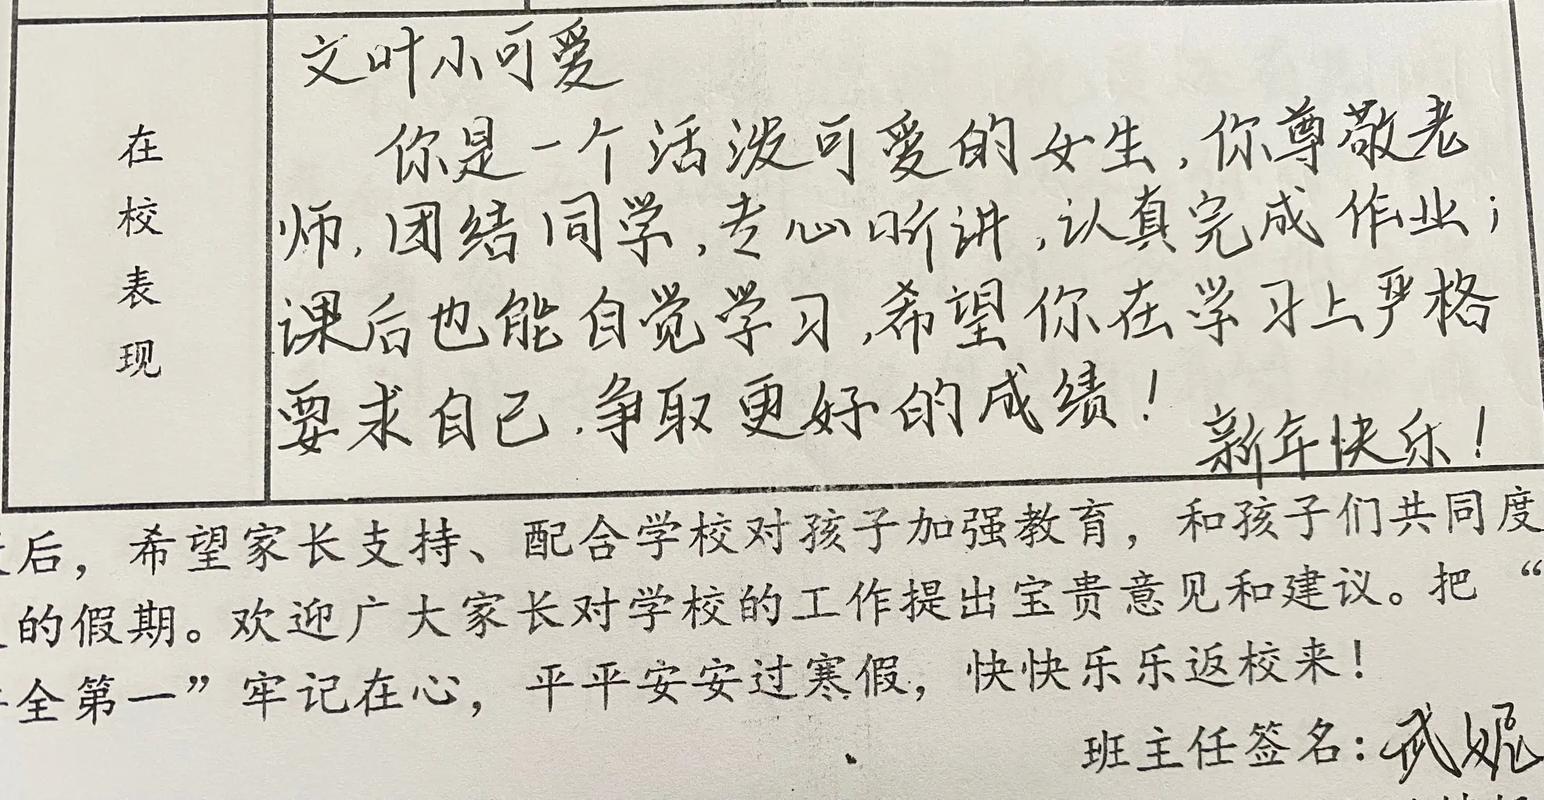 文叶小可爱
在校表现
你是一个活泼可爱的女生，你尊敬老
师，团结同学，专心听讲，认真完成作业；
课后也能自觉学习，希望你在学习上严格
要求自己，争取更好的成绩！
新年快乐！
后，希望家长支持、配合学校对孩子加强教育，和孩子们共同度
的假期。欢迎广大家长对学校的工作提出宝贵意见和建议。把“
全第一”牢记在心，平平安安过寒假，快快乐乐返校来！
班主任签名：武妮